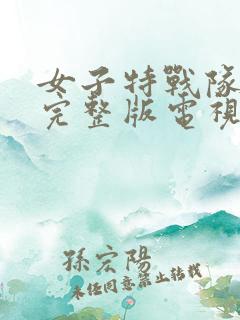 女子特戰隊
完整版電視
孫宏陽
未經同意禁止轉載